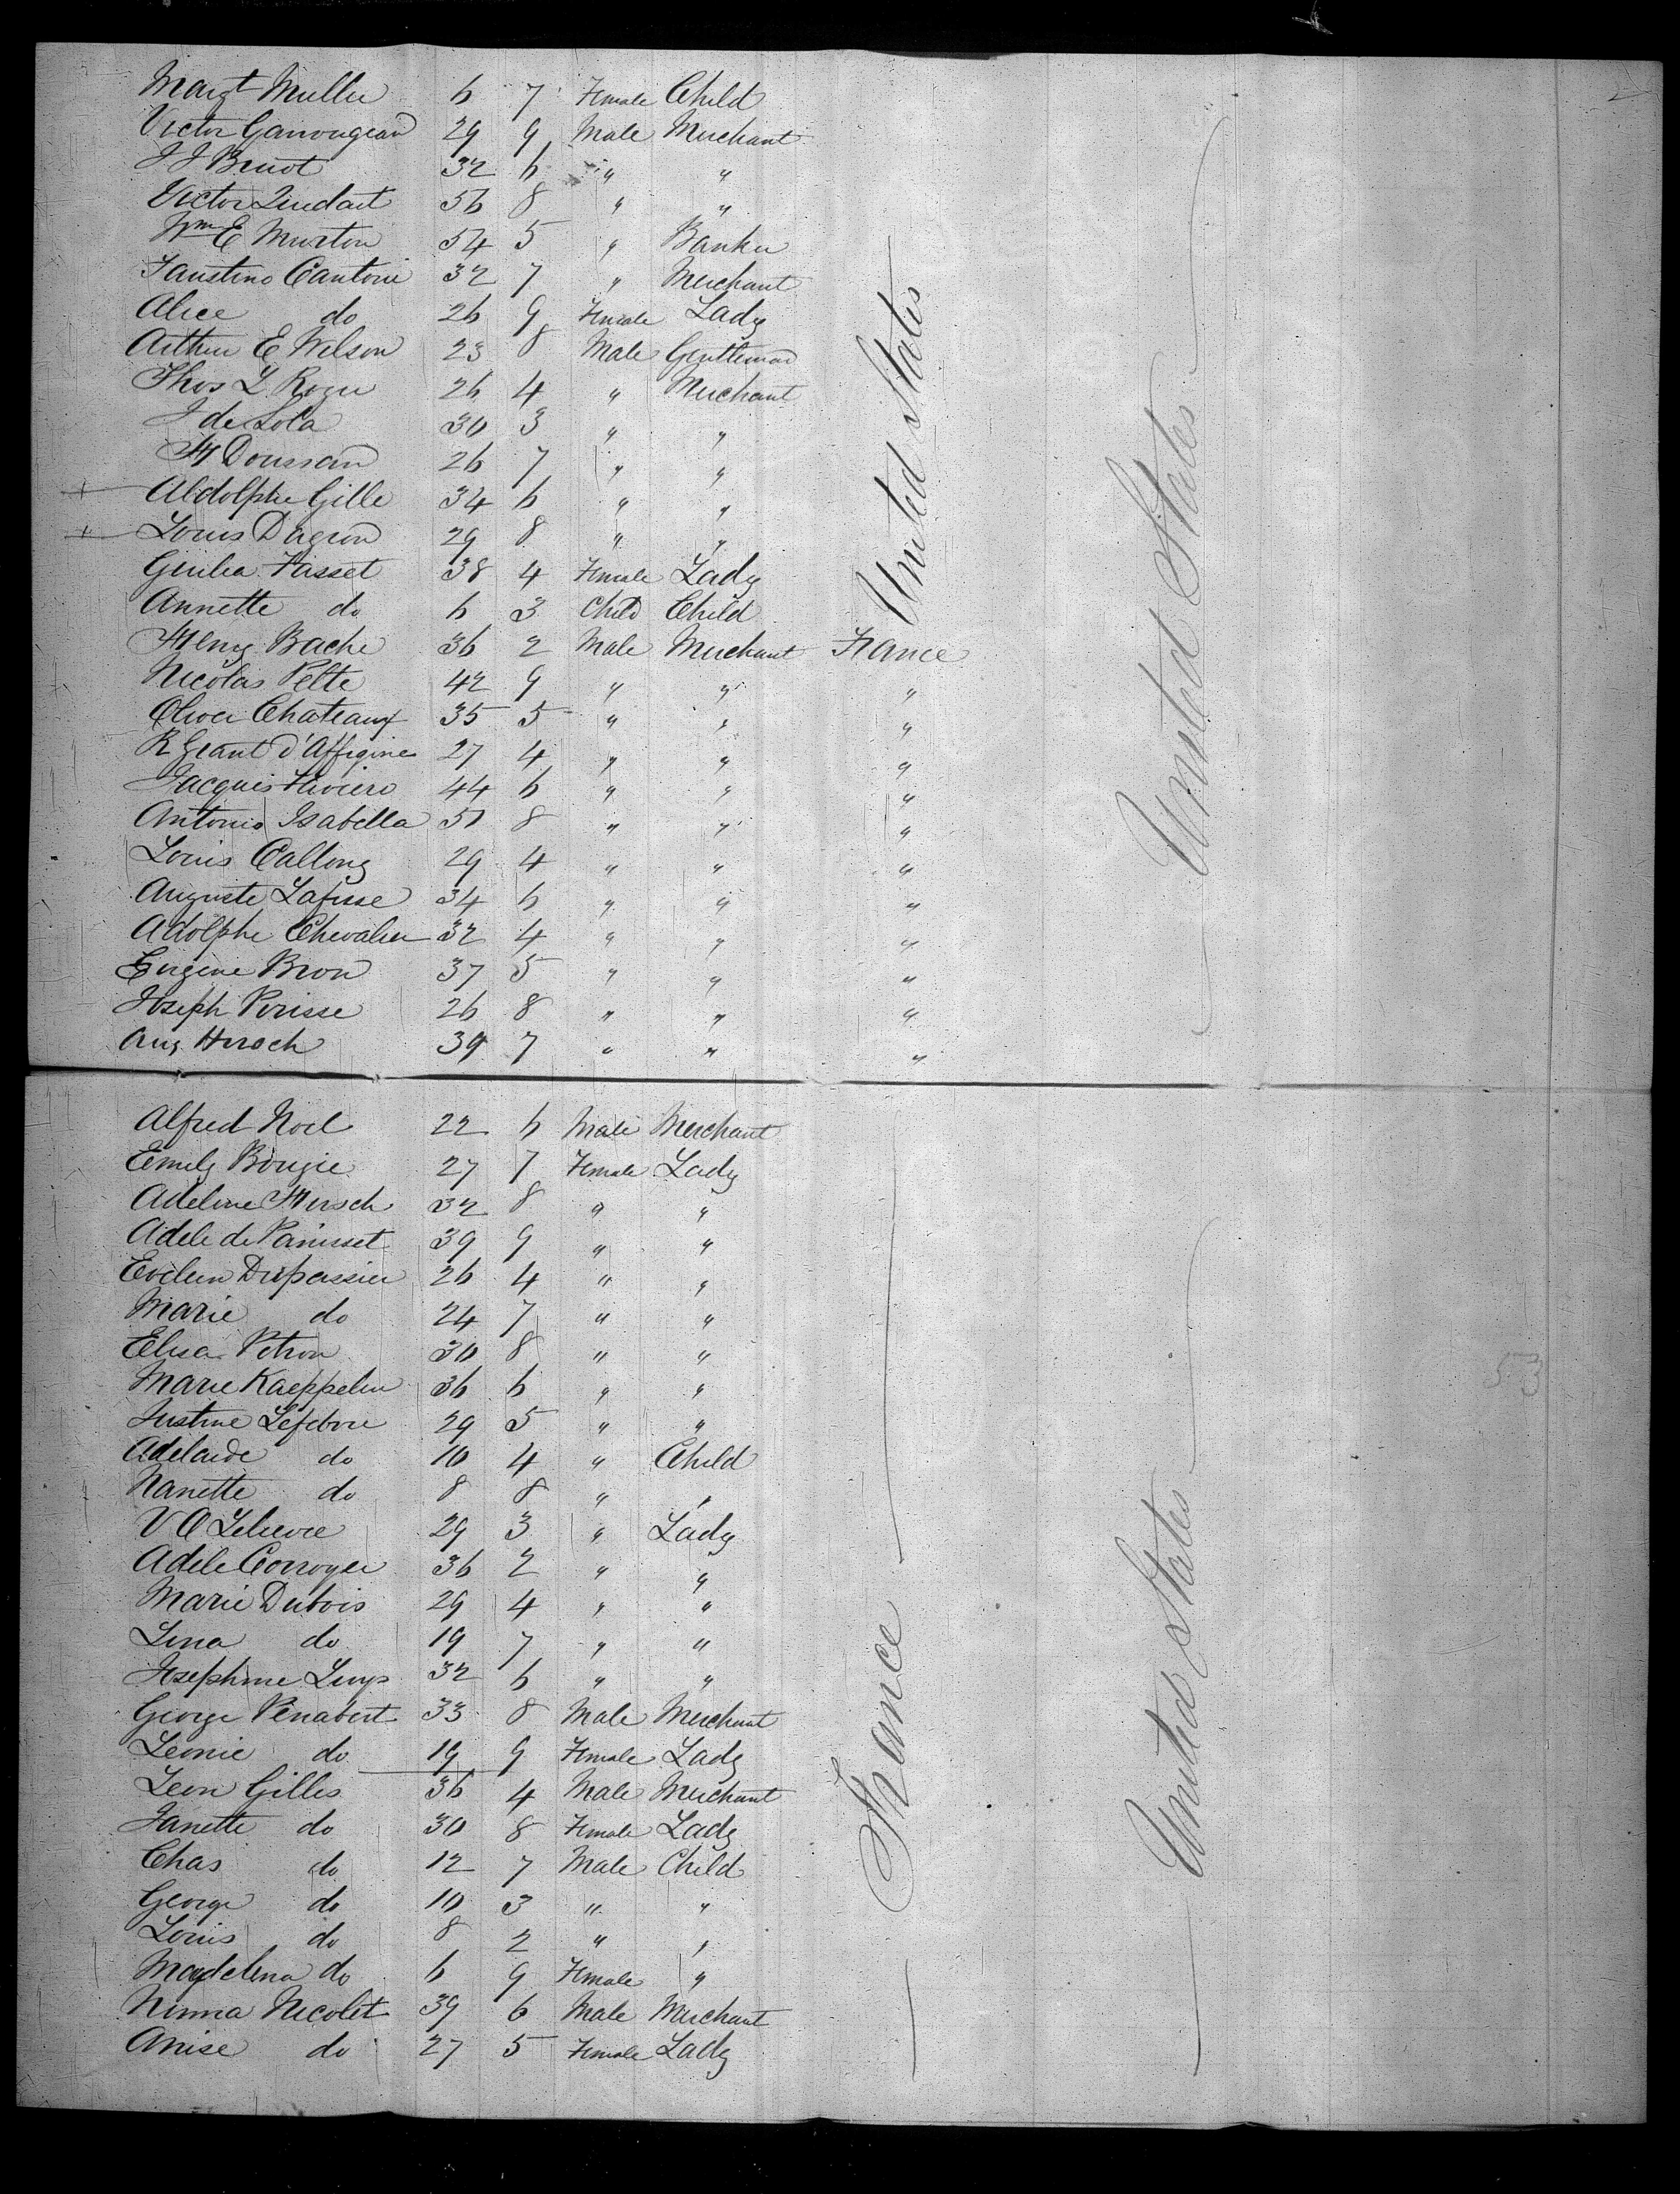 Margt Muller 6 7 Female Child
Victor Ganougeau 29 9 Male Merchant
J J Bruot 32 6 " " "
Victor Lindart 56 8 " "
Wm E Murton 54 5 " Banker
Faustino Cantoni 32 7 " Merchant
Alice do 26 9 Female Lady
Arthur E Wilson 23 8 Male Gentleman
Thos L Rozer 26 4 " Merchant
J de Sola 30 3 " "
H Doussan 26 7 " "
Aldolphe Gille 34 6 " "
Louis Dagron 29 8 " "
Giulia Fasset 38 4 Female Lady
Annette do 6 3 Child Child
United States
Henry Bache 36 2 Male Merchant France
Nicolas Pelte 42 9 " " "
Oliver Chateaux 35 5 " " "
R Geant d'Affigine 27 4 " " "
Jacques 44 6 " " "
Antonio Isabella 51 8 " " "
Louis Callong 29 4 " " "
Auguste Lafisse 34 6 " " "
Adolphe Chevalier 32 4 " " "
Eugene Bron 37 5 " " "
Joseph Perisse 26 8 " " "
Aug Hirsch 39 7 " " "
United States
Alfred Noel 22 6 Male Merchant
Emily Bougie 27 7 Female Lady
Adeline Hirsch 32 8 " "
Adele de Panisset 39 9 " "
Evelun Dupassier 26 4 " "
Marie do 24 7 " "
Elisa Petron 30 8 " "
Marie Kaeppelin 36 6 " "
Justine Lefebvre 29 5 " "
Adelaide do 10 4 " Child
Nanette do 8 8 " "
V O Lelievre 29 3 " Lady
Adele Corroyer 36 2 " "
Marie Dubois 29 4 " "
Lina do 19 7 " "
Josephine Luys 32 6 " "
George Penabert 33 8 Male Merchant
Leonie do 19 9 Female Lady
Leon Gilles 36 4 Male Merchant
Fanette do 30 8 Female Lady
Chas do 12 7 Male Child
George do 10 3 " "
Louis do 8 2 " "
Magdelena do 6 9 Female "
Numa Nicolet 39 6 Male Merchant
Anise do 27 5 Female Lady
France
United States
53